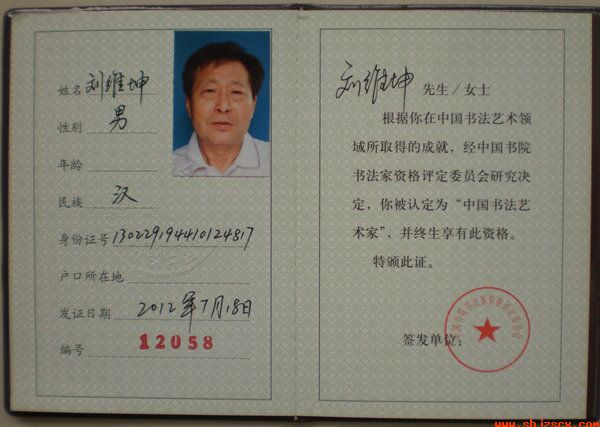 姓名 刘维坤
性别 男
年龄
民族 汉
身份证号 130229194410124817
户口所在地
发证日期 2012年7月18日
编号 12058
刘维坤 先生/女士
根据你在中国书法艺术领
域所取得的成就，经中国书院
书法家资格评定委员会研究决
定，你被认定为“中国书法艺
术家”，并终生享有此资格。
特颁此证。
签发单位：
中国书院书法家资格评定委员会